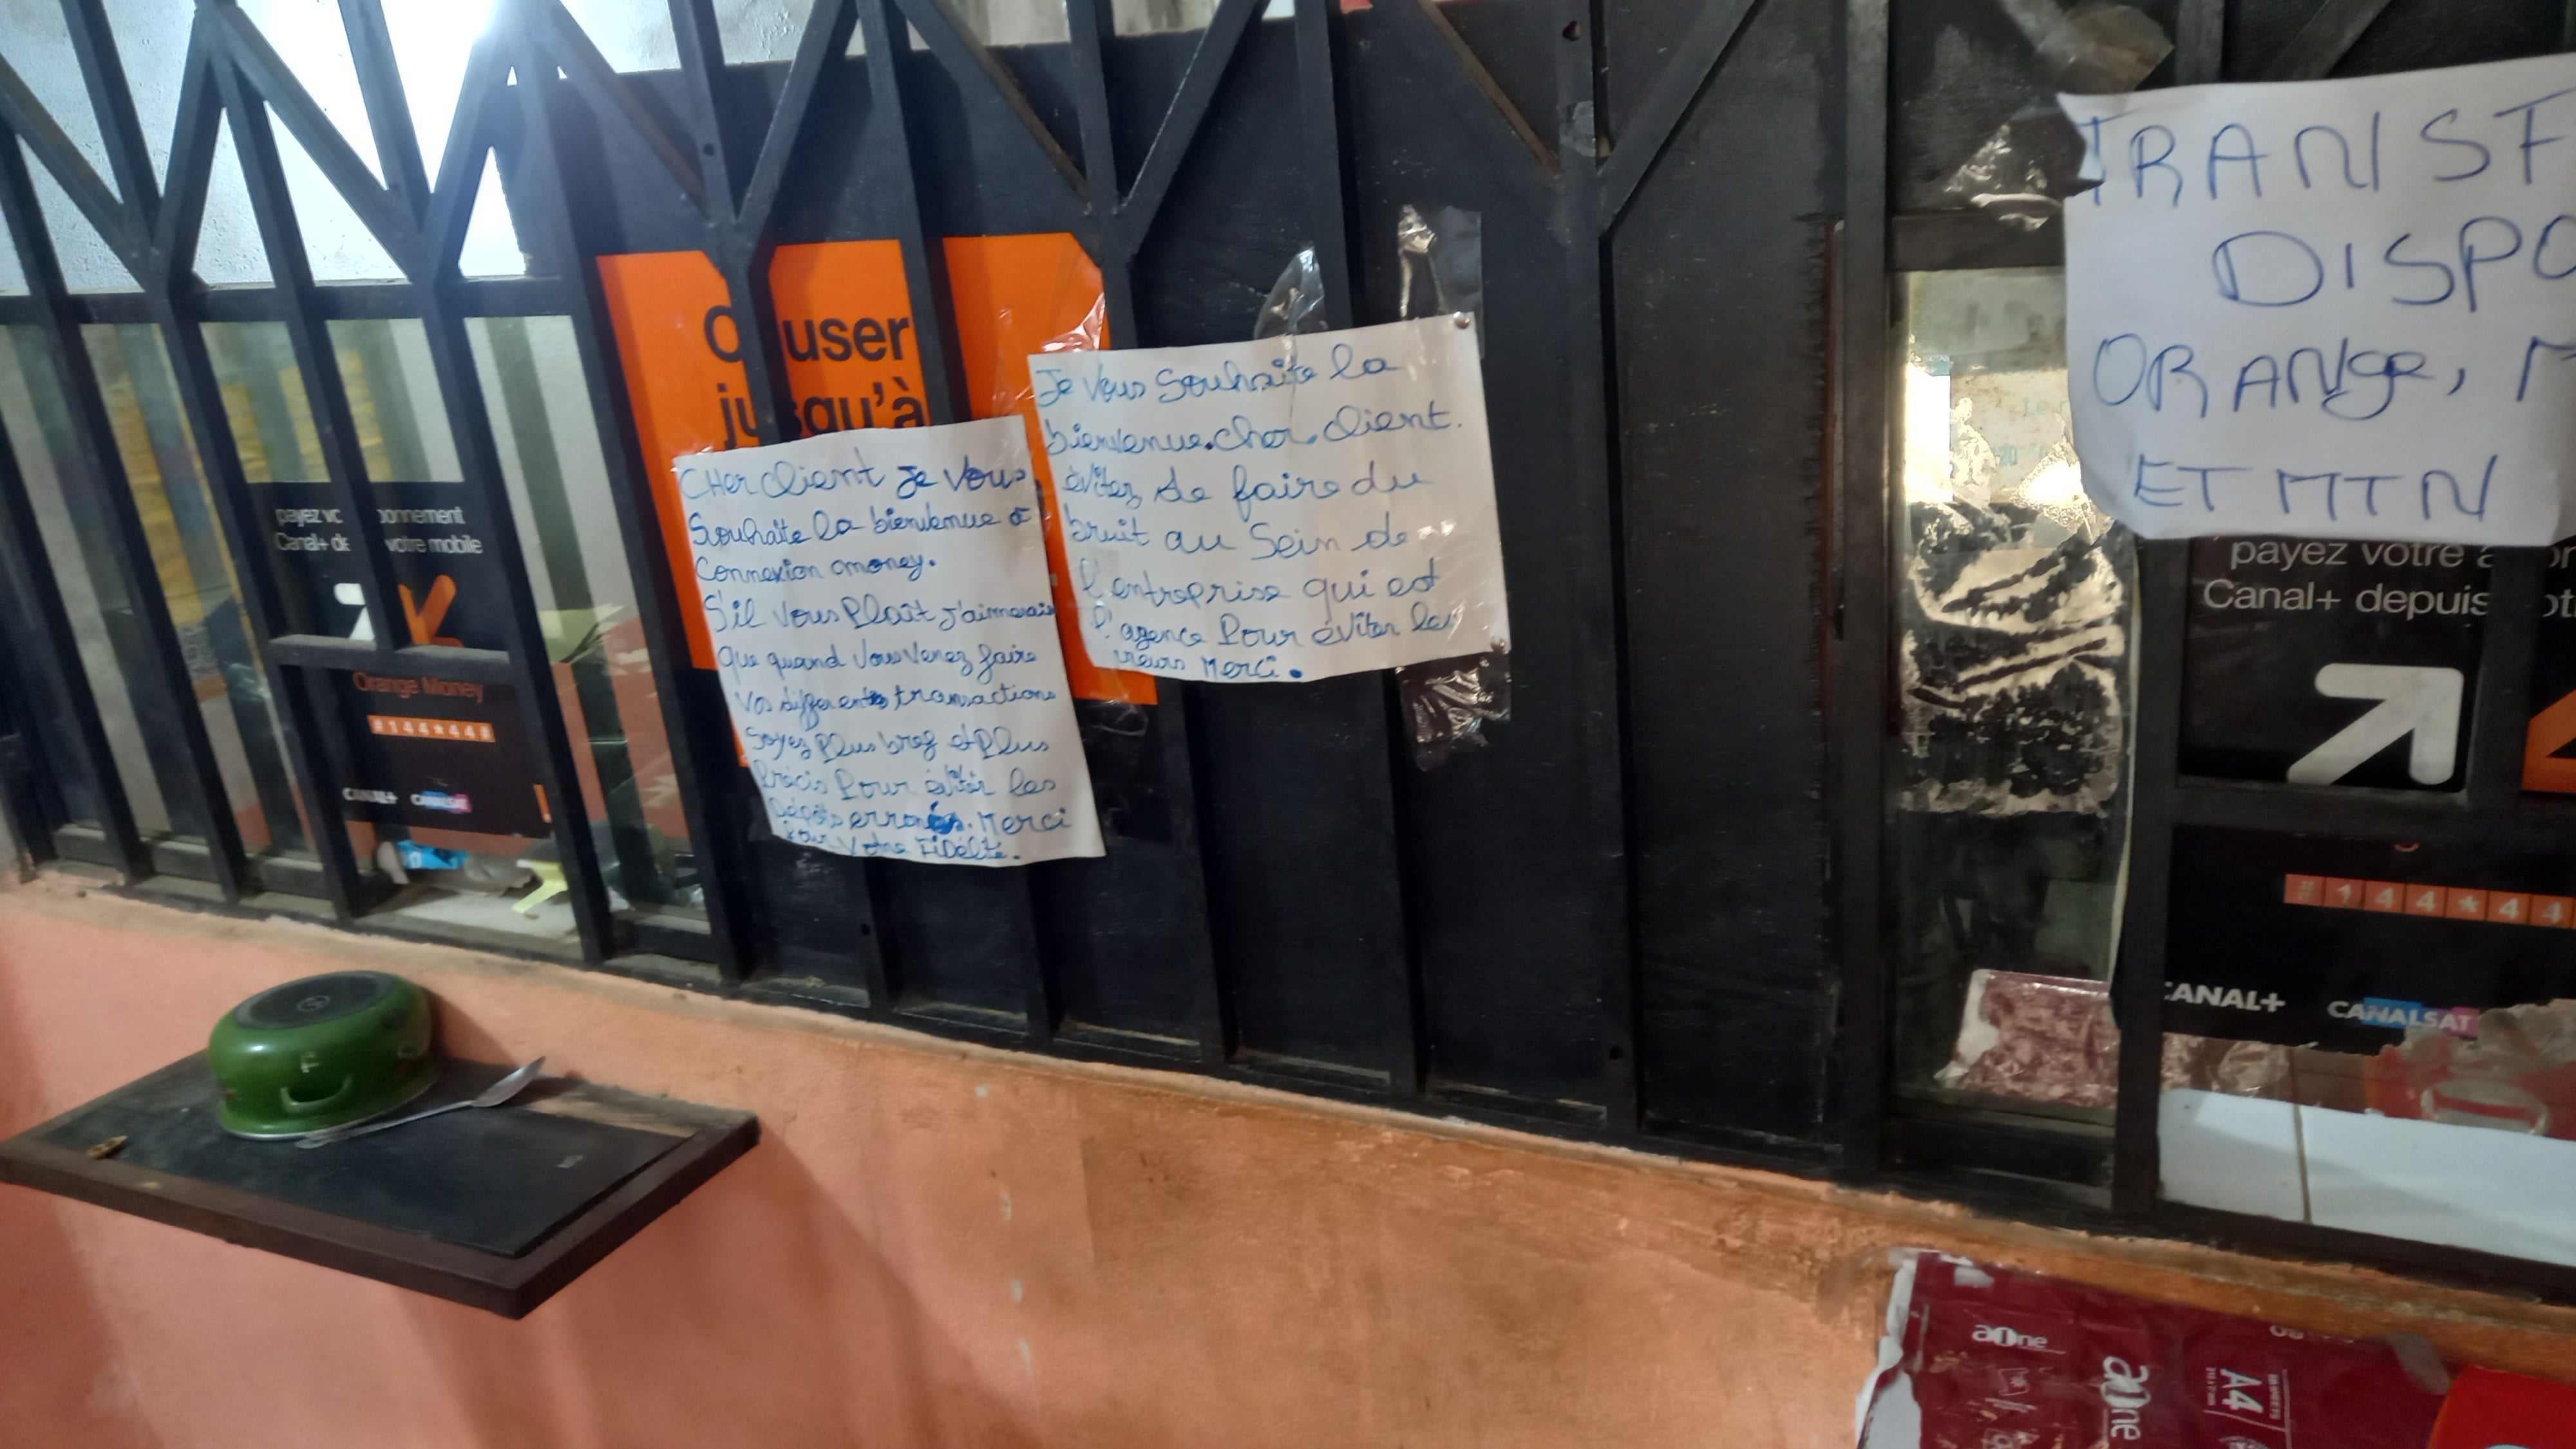 payez vo onnement
Canal+ de votre mobile
Orange Money
#144*44#
CANAL+ CANALSAT
user
jusqu'à
CHer client je vous
Souhaite la bienvenue à
Connexion omoney.
S'il vous plaît j'aimerais
que quand vous venez faire
vos differents transactions
Soyez plus bref et plus
Précis pour éviter les
Dépôts erronés. Merci
pour votre Fidélité.
Je vous souhaite la
bienvenue. cher. client.
évitez de faire du
bruit au sein de
l'entreprise qui est
l'agence pour éviter les
Merci.
TRANSF
DISPO
ORANge, M
ET MTN
payez votre a
Canal+ depuis
#144*44
CANAL+ CANALSAT
aOne
aOne
A4